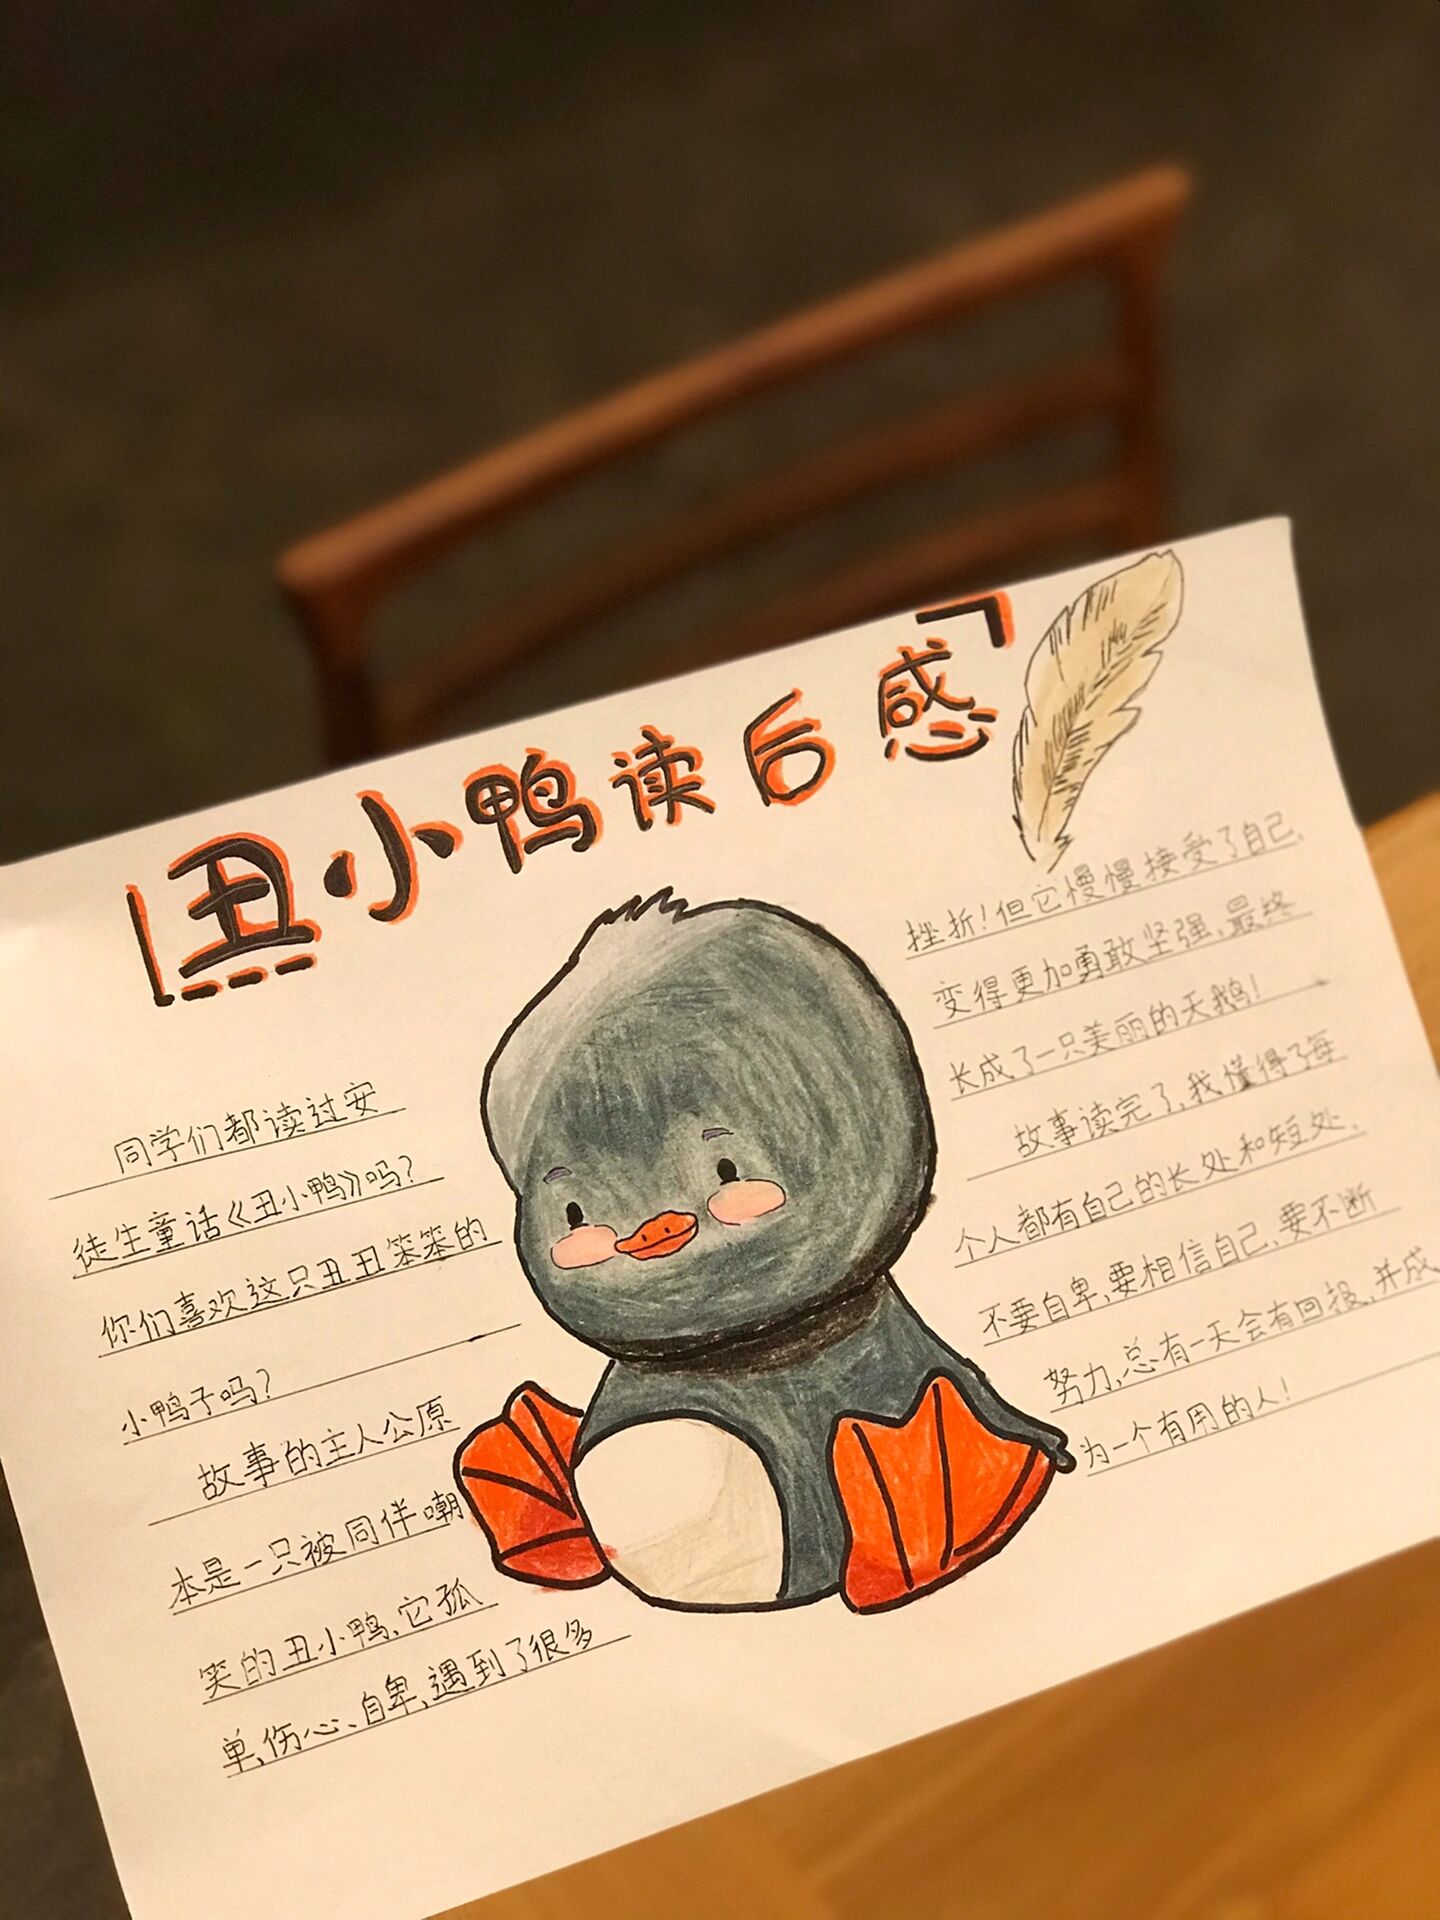 丑小鸭读后感
同学们都读过安
徒生童话《丑小鸭》吗？
你们喜欢这只丑丑笨笨的
小鸭子吗？
故事的主人公原
本是一只被同伴嘲
笑的丑小鸭、它孤
单、伤心、自卑、遇到了很多
挫折！但它慢慢接受了自己、
变得更加勇敢坚强、最终
长成了一只美丽的天鹅！
故事读完了、我懂得了每
个人都有自己的长处和短处、
不要自卑，要相信自己、要不断
努力，总有一天会有回报，并成
为一个有用的人！